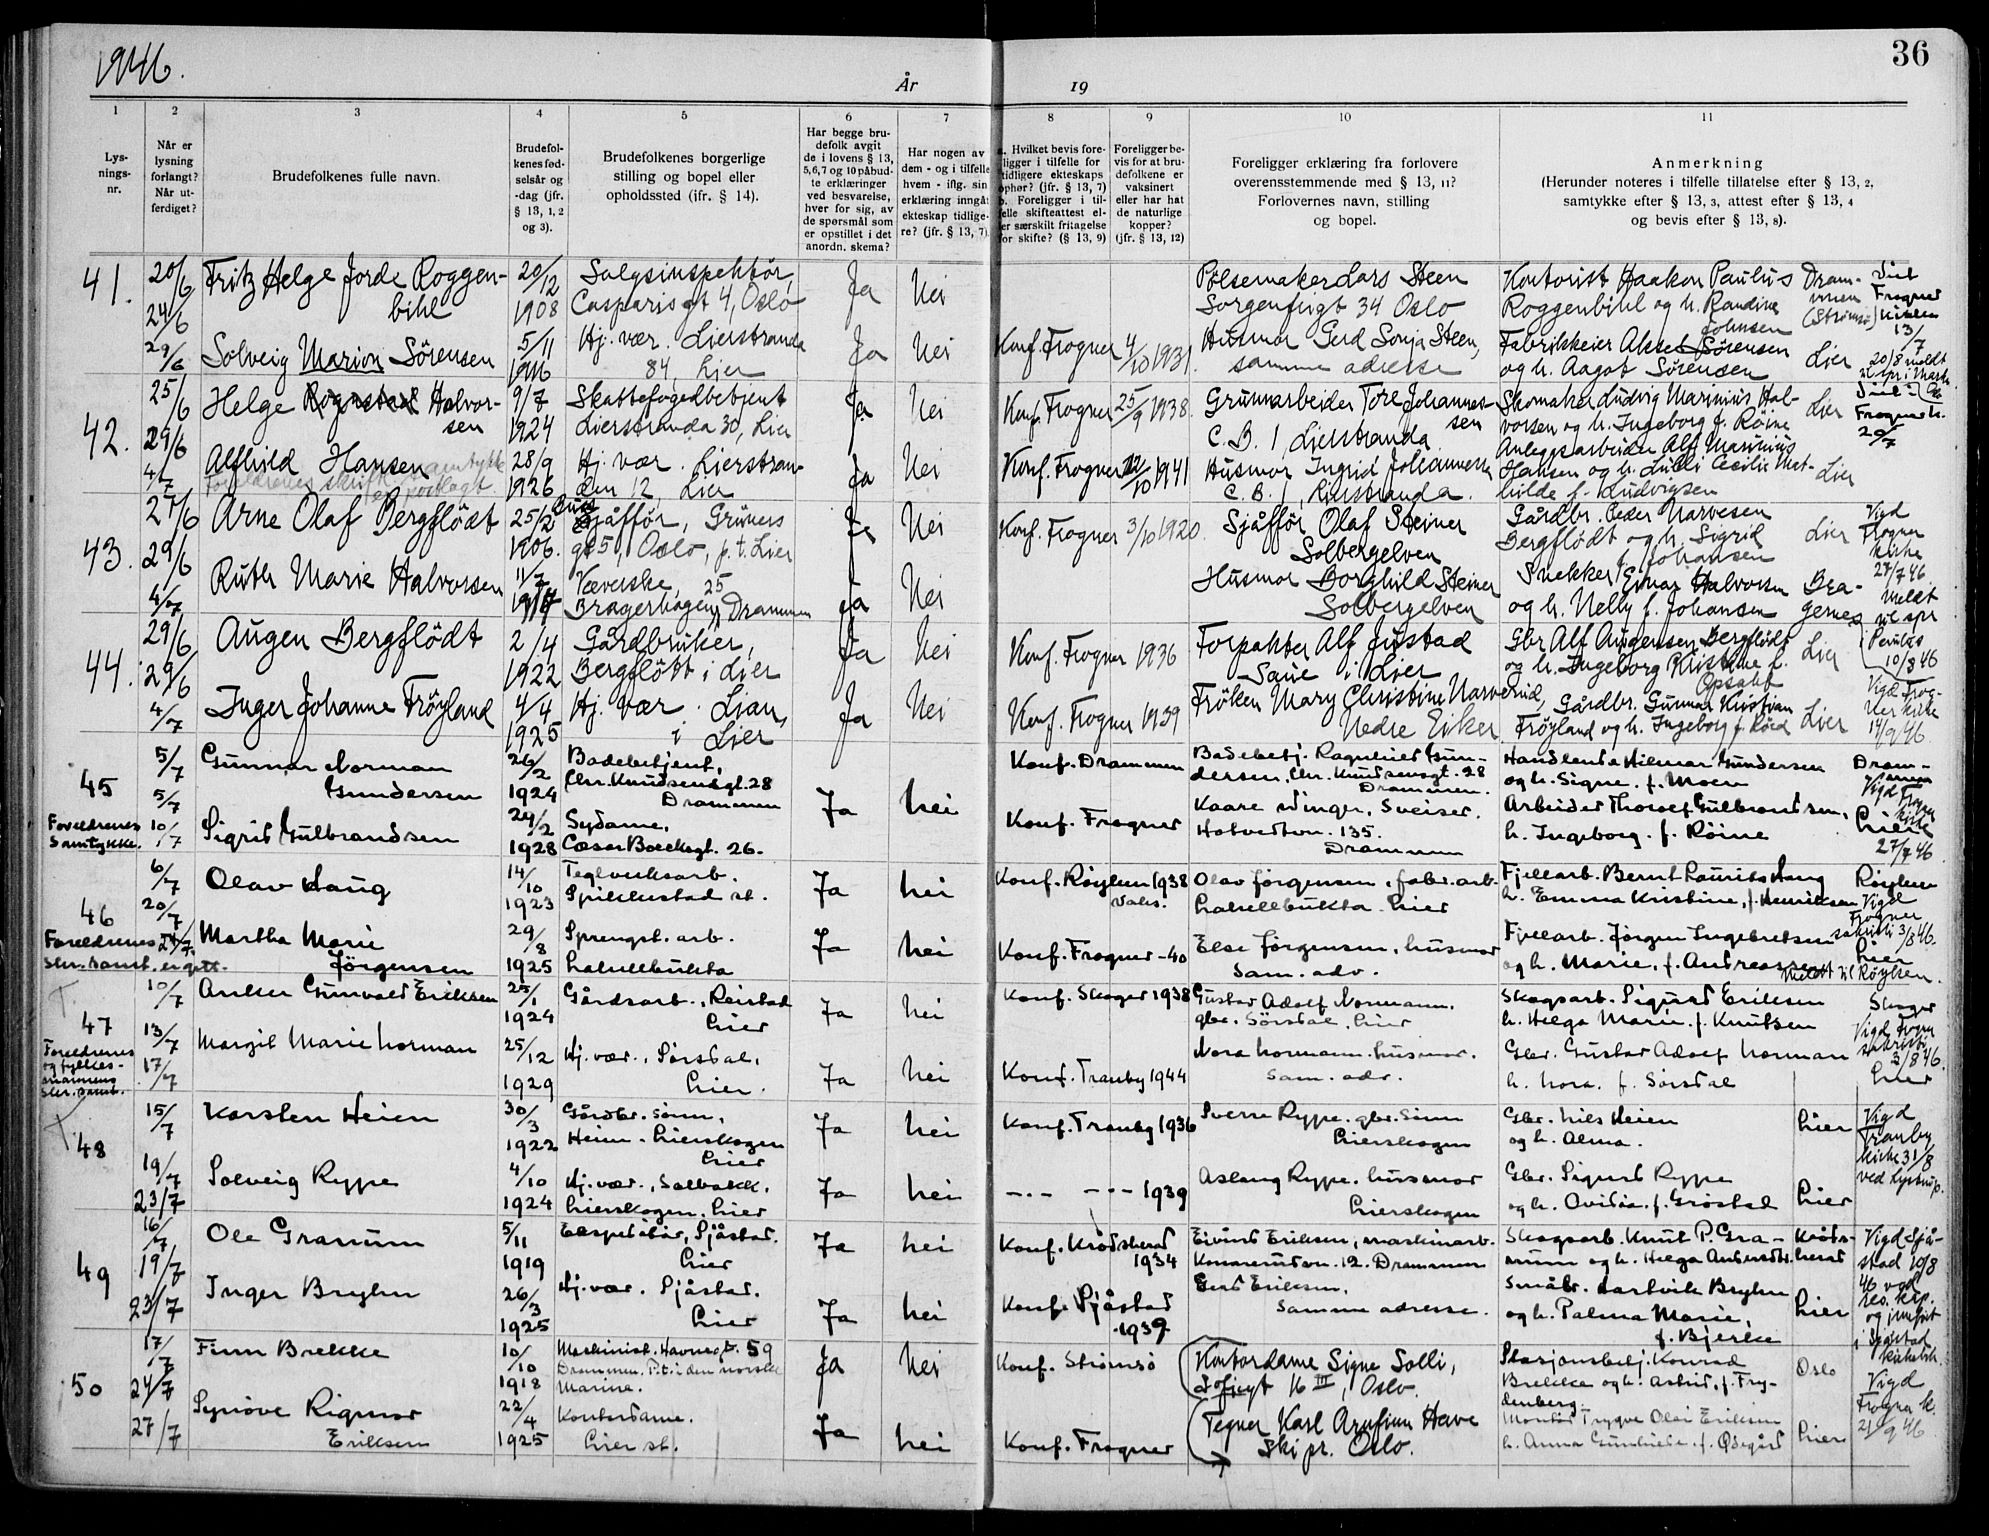 1946.
36
År 19
1 2 3 4 5 6 7 8 9 10 11
Lys-
nings-
nr.
Når er
lysning
forlangt?
Når ut-
ferdiget?
Brudefolkenes fulle navn.
Brudefol-
kenes fød-
selsår og
-dag (jfr.
§ 13, 1, 2
og 3).
Brudefolkenes borgerlige
stilling og bopel eller
opholdssted (ifr. § 14).
Har begge bru-
defolk avgit
de i lovens § 13,
5,6,7 og 10 påbud-
te erklæringer
ved besvarelse,
hver for sig, av
de spørsmål som
er opstillet i det
anordn. skema?
Har nogen av
dem - og i tilfelle
hvem - iflg. sin
erklæring inngåt
ekteskap tidlige-
re? (jfr. § 13, 7).
a. Hvilket bevis fore-
ligger i tilfelle for
tidligere ekteskaps
ophør? (jfr. § 13, 7)
b. Foreligger i til-
felle skifteattest el-
er særskilt fritagelse
for skifte? (§ 13, 9)
Foreligger be-
vis for at bru-
defolkene er
vaksinert
eller har hat
de naturlige
kopper?
(jfr. § 13, 12)
Foreligger erklæring fra forlovere
overensstemmende med § 13, 11?
Forlovernes navn, stilling
og bopel.
Anmerkning
(Herunder noteres i tilfelle tillatelse efter § 13, 2,
samtykke efter § 13, 3, attest efter § 13, 4
og bevis efter § 13, 8).
41. 20/6 24/6 29/6
Fritz Helge Jorde Roggen-
bihl
20/12 1908
Salgsinspektør,
Casparis gt 4, Oslo
Ja Nei
Pølsemaker Lars Steen
Sorgenfrigt 34 Oslo
Kontorist Haakon Paulus
Roggenbihl og h. Randine
Johnsen
Dram-
men
(Strømsø)
Viet
Frogner
kirken
13/7
Solveig Marion Sörensen
5/11 1916
Hj. vær. Lierstranda
84, Lier
Ja Nei
Konf. Frogner 4/10 1931.
Husmor Gerd Sonja Steen,
samme adresse
Fabrikkeier Aksel Sörensen
og h. Aagot Sörensen
Lier
20/8 meldt
42. 25/6 29/6 4/7
Helge Rognstad Halvor-
sen
9/7 1924
Skattefogedbetjent
Lierstranda 30, Lier
Ja Nei
Konf. Frogner 25/9 1938.
Grunnarbeider Tore Johannes-
sen
C. B. 1, Lierstranda
Skomaker Ludvig Marinius Hal-
vorsen og h. Ingeborg f. Röine
Lier
Viet i
Frogner k.
20/7
Alfhild Hansen
Foreldrenes skriftl. samtykke
er forelagt
28/9 1926
Hj. vær. Lierstran-
den 12, Lier
Ja Nei
Konf. Frogner 12/10 1941
Husmor Ingrid Johannessen
C. B. 1, Lierstranda.
Anleggsarbeider Alf Marinius
Hansen og h. Lulli Cecilie Mat-
hilde f. Ludvigsen
Lier
43. 27/6 29/6 4/7
Arne Olaf Bergflödt
25/2 1906.
Sjåffør, Grüners
gt 51, Oslo, p.t. Lier
Ja Nei
Konf. Frogner 3/10 1920.
Sjåffør Olaf Steiner
Solbergelven
Gårdbr. Peder Narvesen
Bergflödt og h. Sigrid
f. Johansen
Lier
Vigd
Frogner
kirke
27/7 46
meldt
til spr
i Paulus
10/8 46
Ruth Marie Halvorsen
11/7 1917
Væverske,
Bragerhagen 25, Drammen
Ja Nei
Husmor Borghild Steiner
Solbergelven
Snekker Einar Halvorsen
og h. Nelly f. Johansen
Bra-
gernes
44. 29/6 29/6 4/7
Augen Bergflödt
2/4 1922
Gårdbruker,
Bergflödt i Lier
Ja Nei
Konf. Frogner 1936
Forpakter Alf Justad
Saue i Lier
Gbr Alf Augensen Bergflödt
og h. Ingeborg Kristine f.
Opsahl
Lier
Inger Johanne Fröyland
4/4 1925
Hj. vær. Lian,
i Lier
Ja Nei
Konf. Frogner 1939
Fröken Mary Christine Narverud,
Nedre Eiker
Gårdbr. Gunnar Kristian
Fröyland og h. Ingeborg f. Röed
Lier
Vigd Frog-
ner kirke
14/9 46.
45 5/7 5/7 10/7
Foreldrenes
Samtykke.
Gunnar Norman
Gundersen
26/2 1924
Badebetjent,
Chr. Knudsensgt. 28
Drammen
Ja Nei
Konf. Drammen
Badebetj. Ragnhild Gun-
dersen, Chr. Knudsensgt. 28
Drammen.
Handlende Hilmar Gundersen
og h. Signe. f. Moen
Dram-
men
Vigd Frogner
kirke
27/7 46
Sigrid Gulbrandsen
29/2 1928
Sydame,
Cæsar Boecksgt. 26.
Konf. Frogner
Kaare Winger, Sveiser.
Hotvedtvn. 135.
Drammen
Arbeider Thorolf Gulbrandsen,
h. Ingeborg. f. Röine
Lier
46 6/7 20/7 24/7
Foreldrenes
skr. samt. er gitt.
Olav Haug
14/10 1923
Teglverksarb.
Spikkestad st.
Ja Nei
Konf. Røyken 1938
Vaks.
Olav Jörgensen, fabr. arb.
Lahellbukta. Lier
Fjellarb. Bernt Laurits Haug
h. Emma Kristine, f. Henriksen
Røyken
Vigd
Frogner
sakristi 3/8 46.
Martha Marie
Jörgensen
29/8 1925
Sprengst. arb.
Lahellbukta
Ja Nei
Konf. Frogner - 40
Else Jörgensen, husmor
Sam. adr.
Fjellarb. Jörgen Ingebretsen
og h. Marie, f. Andreassen
Lier
Meldt til Røyken.
47 10/7 13/7 17/7
Foreldrenes
og fylkes-
mannens
skr. samt.
Anker Gunvald Eriksen
25/1 1924
Gårdsarb., Reistad
Lier
Ja Nei
Konf. Skoger 1938
Gustav Adolf Normann.
gbr. Sørsdal, Lier
Skogsarb. Sigurd Eriksen
h. Helga Marie. f. Knutsen
Skoger
Vigd Frogn
sakristi
3/8 46.
Margit Marie Norman
25/12 1929
Hj. vær., Sørsdal,
Lier.
Ja Nei
Konf. Tranby 1944
Nora Normann. husmor.
Sam. adr.
Gbr. Gustav Adolf Norman
h. Nora. f. Sørsdal
Lier
48 15/7 19/7 23/7
Karsten Heien
30/3 1922
Gårdbr. sønn,
Heien. Lierskogen
Lier
Ja Nei
Konf. Tranby 1936
Sverre Rype. gbr. sønn
Lierskogen
Gbr. Nils Heien
og h. Alma.
Lier
Vigd
Tranby
kirke 31/8
ved Lystrup.
Solveig Rype
4/10 1924
Hj. vær., Solbakk.
Lierskogen. Lier
Ja Nei
-.- -.- 1939
Aslaug Rype. husmor
Lierskogen
Gbr. Sigurd Rype
og h. Ovidia. f. Grøstad
Lier
49 16/7 19/7 23/7
Ole Granum
5/11 1919
Ekspeditør, Sjåstad.
Lier
Ja Nei
Konf. Krødsherad
1934
Eivind Eriksen, maskinarb.
Konnerudvn. 12. Drammen
Skogsarb. Knut P. Gra-
num og h. Helga Andersdtr.
Krøds-
herad
Vigd Sjå-
stad 10/8
46 ved
res. kap.
Inger Brylin
26/3 1925
Hj. vær. Sjåstad.
Lier
Ja Nei
Konf. Sjåstad
1939
Gerd Eriksen.
Samme adresse.
Småbr. Hartvik Brylin
og h. Palma Marie,
f. Bjerke
Lier
50 17/7 24/7 27/7
Finn Brekke
10/10 1918
Maskinist. Havnegt. 59
Drammen. P.t. i den norske
Marine.
Ja Nei
Konf. Strømsø
Kontordame Signe Solli,
Sofiegt 16 III, Oslo.
Stasjonsbetj. Konrad
Brekke og h. Astrid, f. Fry-
denberg
Oslo
Vigd
Frogner k.
21/9 46
Synöve Rigmor
Eriksen
22/4 1925
Kontordame.
Lier st.
Ja Nei
Konf. Frogner
Tegner Karl Arnfinn Have
Ski pr. Oslo.
Montør Trygve Olai Eriksen
h. Anna Gunhilda. f. Ødegård
Lier